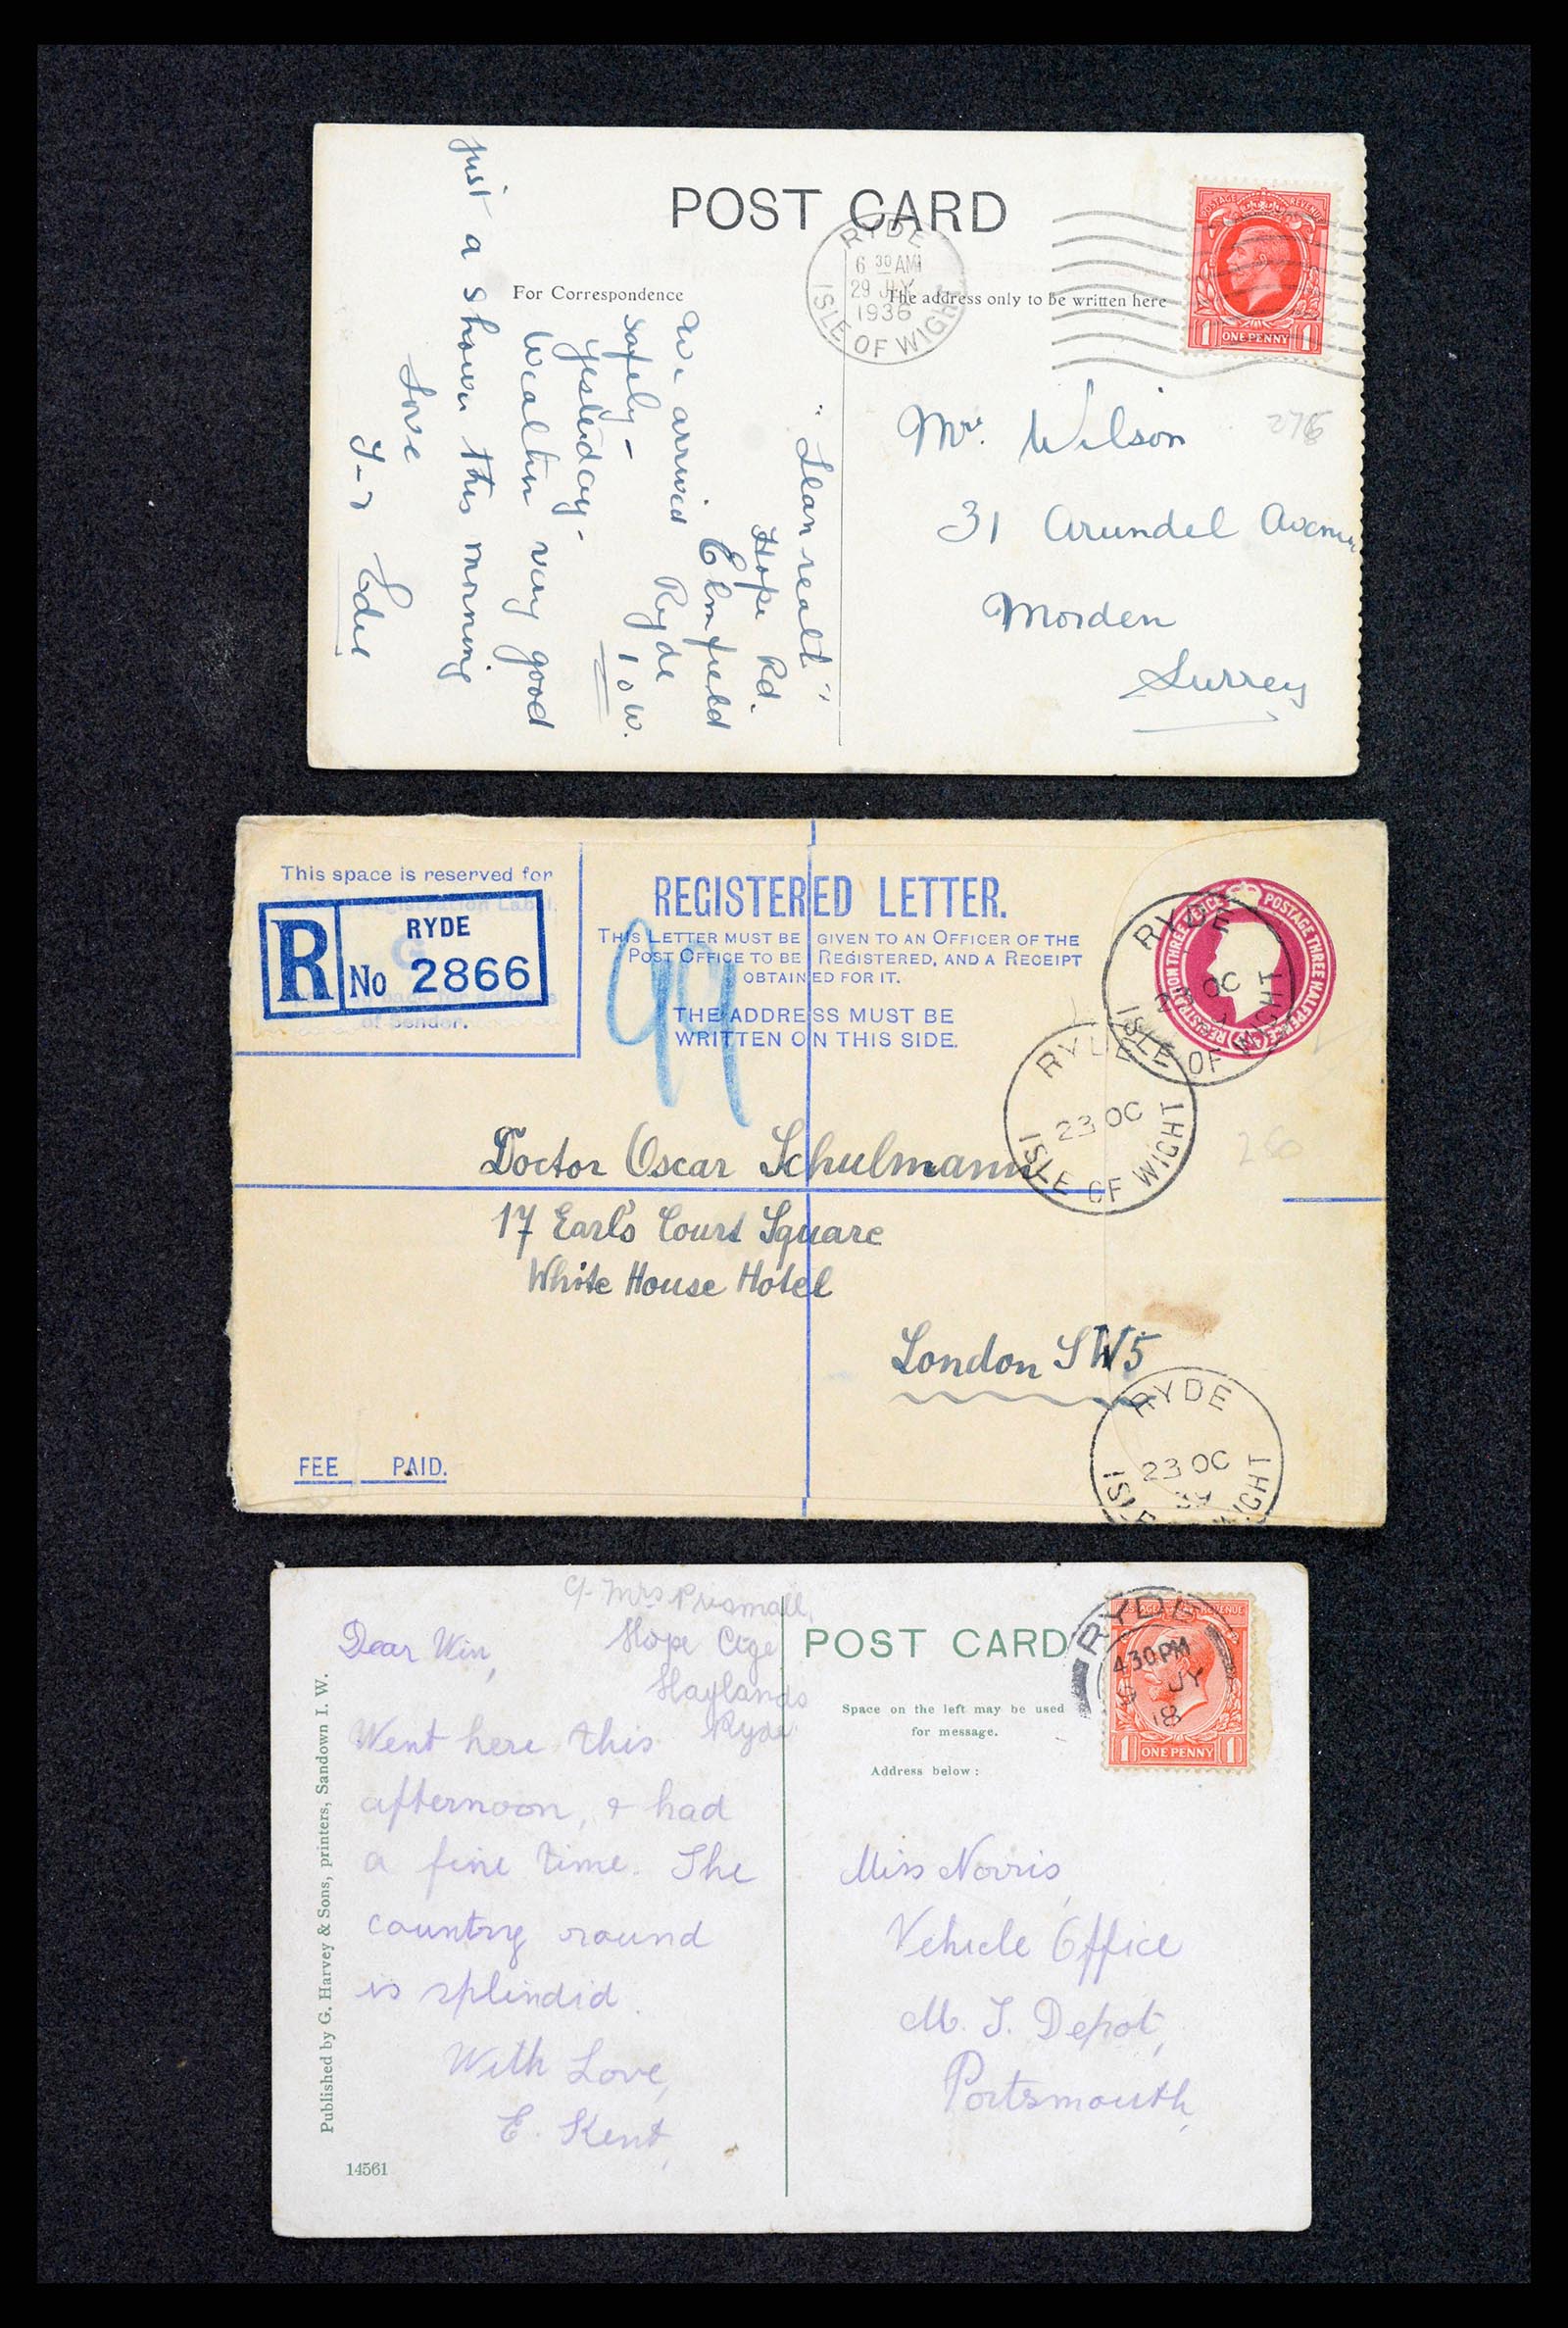 POST CARD
For Correspondence
The address only to be written here
RYDE
6 30 AM
29 JLY
1936
ISLE OF WIGHT
POSTAGE REVENUE
1 ONE PENNY 1
Mrs. Wilson
31 Arundel Avenue
Morden
Surrey
Hope Rd.
Elmfield
Ryde
I o W.
We arrived
safely –
yesterday –
Weather very good
just a shower this morning
Love
This space is reserved for
R
RYDE
No 2866
of Sender.
REGISTERED LETTER.
THIS LETTER MUST BE GIVEN TO AN OFFICER OF THE
POST OFFICE TO BE REGISTERED, AND A RECEIPT
OBTAINED FOR IT.
THE ADDRESS MUST BE
WRITTEN ON THIS SIDE.
99
REGISTRATION THREE PENCE POSTAGE THREE HALFPENCE
RYDE
23 OC
ISLE OF WIGHT
RYDE
23 OC
ISLE OF WIGHT
250
Doctor Oscar Schulmann
17 Earl's Court Square
White House Hotel
London SW5
RYDE
23 OC
39
ISLE WIGHT
FEE PAID.
c/- Mrs Prismall,
Hope Ctge
Haylands
Ryde
Dear Win,
Went here this
afternoon, & had
a fine time. The
country round
is splendid.
With Love,
E. Kent
Published by G. Harvey & Sons, printers, Sandown I. W.
14561
POST CARD
Space on the left may be used
for message.
Address below:
RYDE
4 30 PM
JY
18
POSTAGE REVENUE
1 ONE PENNY 1
Miss Norris,
Vehicle Office
M. T. Depot,
Portsmouth,